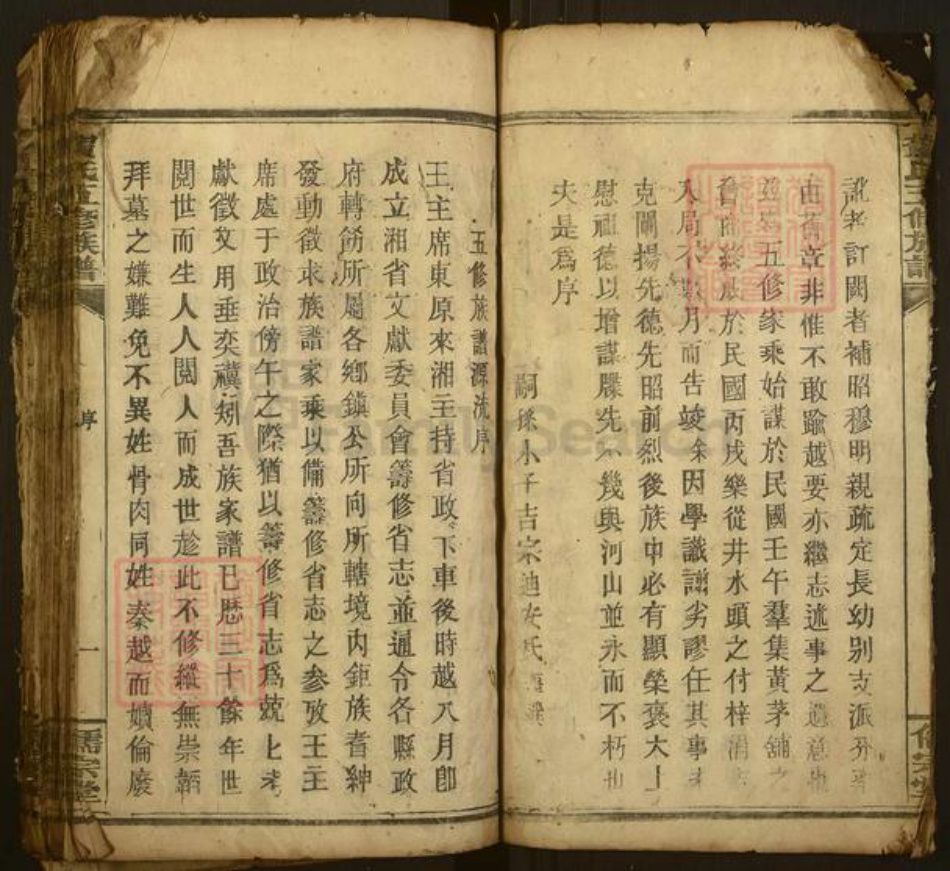 訛者訂闕者補昭穆明親疏定長幼别支派分
由舊章非惟不敢踰越要亦繼志述事之遺意也
五修家乘始謀於民國壬午羣集黃茅舖之
於民國丙戌樂從井水頭之付梓
入局不數月而告竣余因學識謭劣謬任其事
克闡揚先德先昭前烈後族中必有顯榮褒大上
慰祖德以增謀牒先不幾與河山並永而不朽也
夫是爲序
嗣孫小子吉宗迪安氏謹譔
五修族譜源流序
王主席東原來湘主持省政下車後時越八月卽
成立湘省文獻委員會籌修省志並通令各縣政
府轉飭所屬各鄉鎮公所向所轄境內鉅族耆紳
發動徵求族譜家乘以備籌修省志之參攷王主
席處于政治傍午之際猶以籌修省志爲兢
獻徵攷用垂奕禩矧吾族家譜已歴三十餘年世
閱世而生人人閱人而成世趁此不修繼無崇韜
拜墓之嫌難免不異姓骨肉同姓秦越而瀆倫廢
氏五修族譜
序
一
儒宗堂